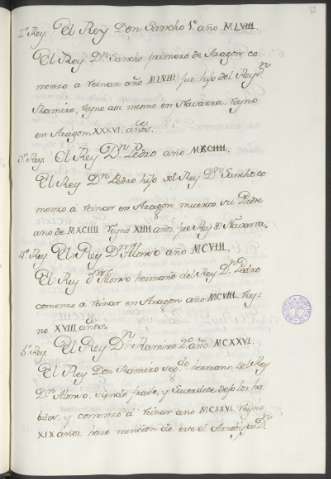 2º Rey. El Rey Don Sancho 1º año MLVIII.
El Rey Dn. Sancho primero de Aragon co
menzo a reinar año MLVIII fue hijo del Rey Dn.
Ramiro, Reyno asi mesmo en Navarra. Reyno
en Aragon XXXVI. años.
3º Rey. El Rey Dn. Pedro año MXCIIII.
El Rey Dn. Pedro hijo del Rey Dn. Sancho co
menzo a reinar en Aragon muerto su Padre
año de MXCIIII Reyno XIIII años, fue Rey de Navarra.
4º Rey. El Rey Dn. Alonso año MCVIII.
El Rey Dn. Alonso hermano del Rey Dn. Pedro
comenzo a reinar en Aragon año MCVIII. Rey-
no XVIII años.
5º Rey. El Rey Dn. Ramiro 2º año MCXXVI.
El Rey Don Ramiro segdo. hermano del Rey
Dn. Alonso, siendo frayle, y Sacerdote dejo los ha
bitos, y comenzo a reinar año MCXXVI. Reyno
XIX años, hace mencion de este el